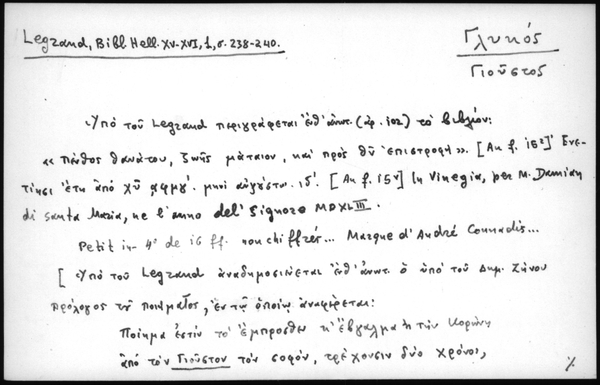 Legrand, Bibl Hell. XV-XVI, 1, σ. 238-240.
Γλυκός
Γιοῦστος
Ὑπὸ τοῦ Legrand περιγράφεται ἐνθ' ἀνωτ. (ἀρ. 102) τὸ βιβλίον:
«Πένθος θανάτου, ζωῆς μάταιον, καὶ πρὸς θν̄ ἐπιστροφή». [Au f. 15²] Ενε-
τίησι ἔτει ἀπὸ χῡ ͵αφμγ'. μηνὶ αὐγούστω. ιδ'. [Au f. 15v] In Vinegia, per M. Damian
di santa Maria, ne l'anno del' Signore MDXLIII.
Petit in-4º de 16 ff. non chiffrés... Marque d'André Counadis...
[Ὑπὸ τοῦ Legrand ἀναδημοσιεύεται ἐνθ' ἀνωτ. ὁ ὑπὸ τοῦ Δημ. Ζήνου
πρόλογος τοῦ ποιήματος, ἐν τῷ ὁποίῳ ἀναφέρεται:
Ποίημα ἐστὶν τὸ ἔμπροσθεν κ' ἔβγαλμα ἐκ τὴν Κορώνη
ἀπὸ τὸν Γιοῦστον τὸν σοφόν, τρέχουσιν δύο χρόνοι,
%